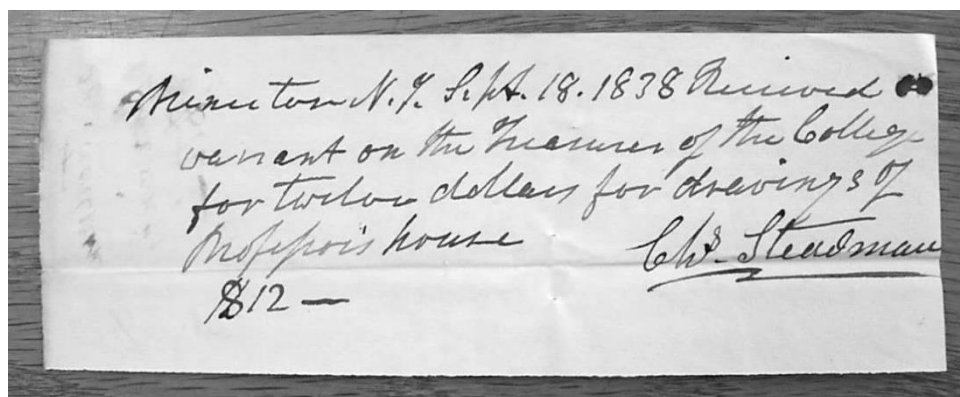 Princeton N.J. Sept. 18. 1838 Received
warrant on the Treasurer of the College
for twelve dollars for drawings of
Professor's house Chs. Steadman
$12 —